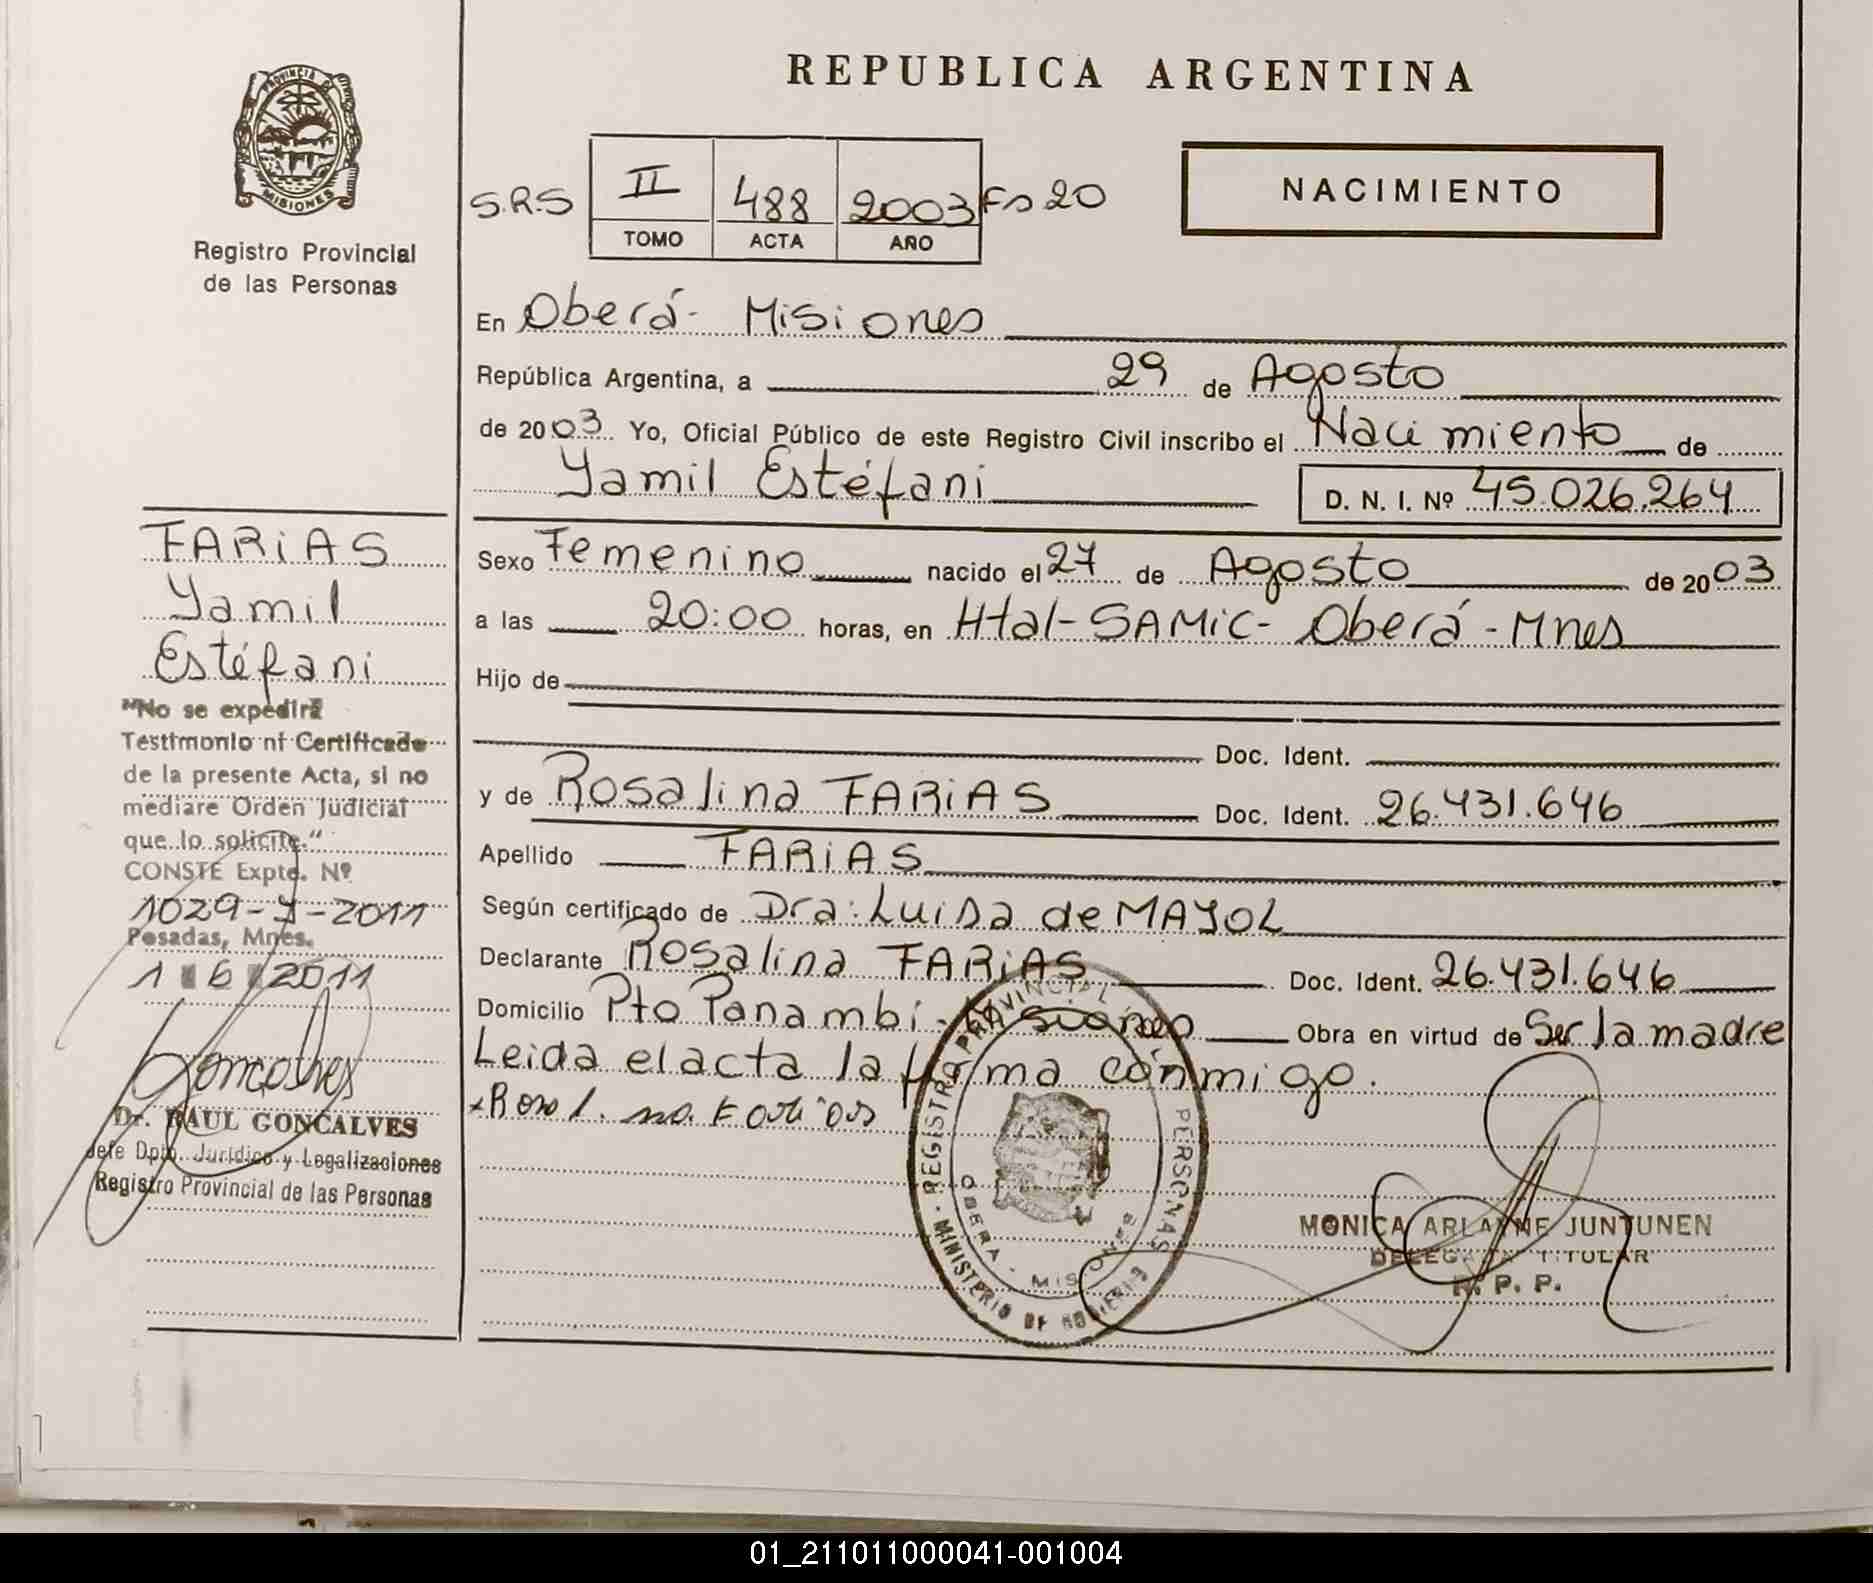 REPUBLICA ARGENTINA
PROVINCIA DE
MISIONES
Registro Provincial
de las Personas
S.R.S II 488 2003 Fs 20
TOMO ACTA AÑO
NACIMIENTO
En Oberá - Misiones
República Argentina, a 29 de Agosto
de 2003 Yo, Oficial Público de este Registro Civil inscribo el Nacimiento de
Yamil Estéfani D. N. I. Nº 45.026.264
Sexo Femenino nacido el 27 de Agosto de 2003
a las 20:00 horas, en Htal - SAMIC - Oberá - Mnes
Hijo de
Doc. Ident.
y de Rosalina FARIAS Doc. Ident. 26.431.646
Apellido FARIAS
Según certificado de Dra: Luisa de MAYOL
Declarante Rosalina FARIAS Doc. Ident. 26.431.646
Domicilio Pto Panambi - Misiones Obra en virtud de Ser la madre
Leida el acta la firma conmigo.
REGISTRO PROVINCIAL PERSONAS
MINISTERIO DE GOBIERNO
OBERA - MISIONES
MONICA ARLAYNE JUNTUNEN
DELEGADA TITULAR
R. P. P.
FARIAS
Yamil
Estéfani
"No se expedirá
Testimonio ni Certificado
de la presente Acta, si no
mediare Orden Judicial
que lo solicite."
CONSTE Expte. Nº
1029-Y-2011
Posadas, Mnes.
1 6 2011
Goncalves
Dr. RAUL GONCALVES
Jefe Dpto. Jurídico y Legalizaciones
Registro Provincial de las Personas
01_211011000041-001004